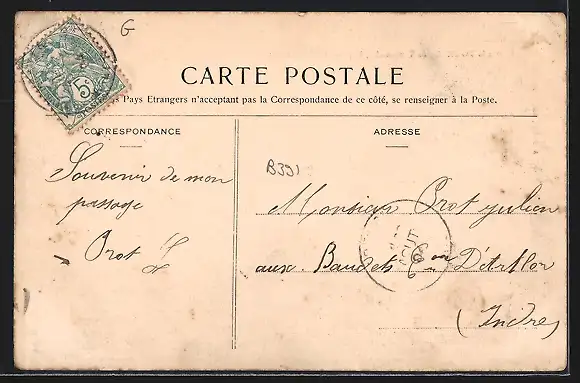 G
5c
CARTE POSTALE
Pays Etrangers n'acceptant pas la Correspondance de ce côté, se renseigner à la Poste.
CORRESPONDANCE
Souvenir de mon
passage
Prot
ADRESSE
B391
Monsieur Prot Julien
aux Baudets
AOUT
(Indre)